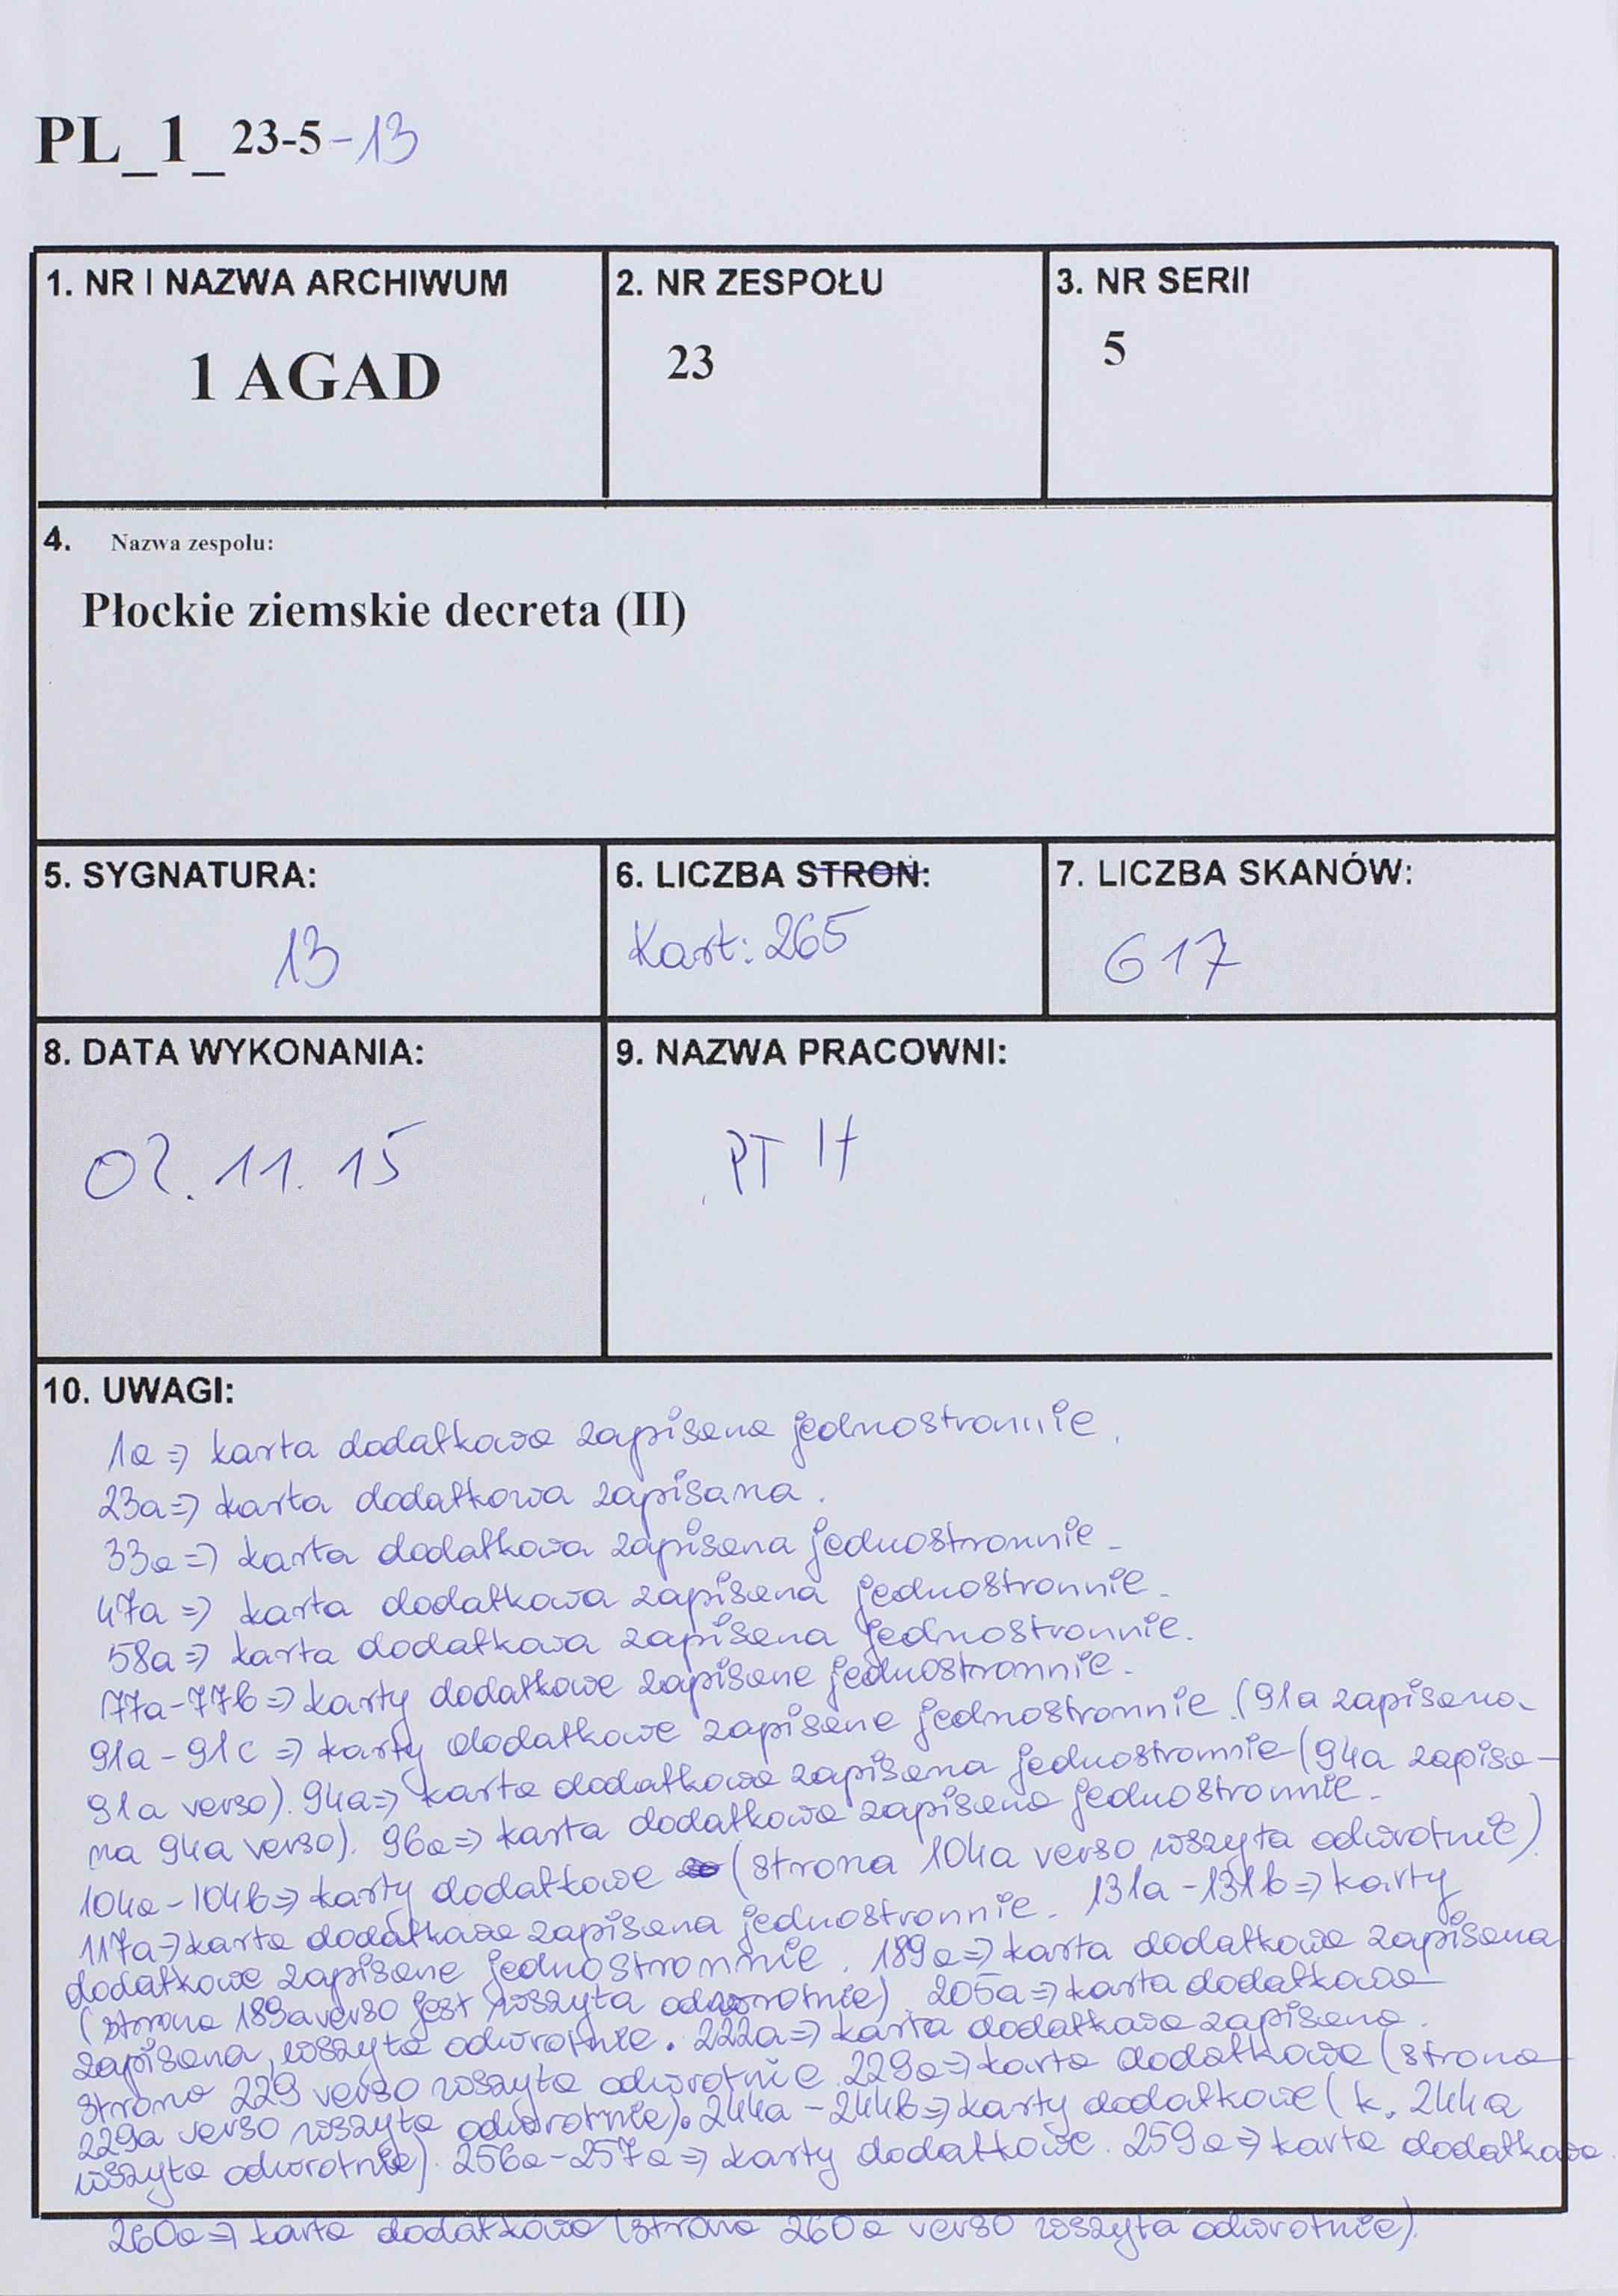 PL_1_23-5-13
1. NR I NAZWA ARCHIWUM
1 AGAD
2. NR ZESPOŁU
23
3. NR SERII
5
4. Nazwa zespolu:
Płockie ziemskie decreta (II)
5. SYGNATURA:
13
6. LICZBA STRON:
Kart: 265
7. LICZBA SKANÓW:
617
8. DATA WYKONANIA:
02.11.15
9. NAZWA PRACOWNI:
PT
10. UWAGI:
1a => karta dodatkowa zapisana jednostronnie.
23a => karta dodatkowa zapisana.
33a => karta dodatkowa zapisana jednostronnie.
47a => karta dodatkowa zapisana jednostronnie.
58a => karta dodatkowa zapisana jednostronnie.
77a-77b => karty dodatkowe zapisane jednostronnie.
91a-91c => karty dodatkowe zapisane jednostronnie. (91a zapisana
91a verso). 94a => karta dodatkowa zapisana jednostronnie (94a zapisa-
na 94a verso). 96a => karta dodatkowa zapisana jednostronnie.
104a-104b => karty dodatkowe (strona 104a verso wszyta odwrotnie)
117a => karta dodatkowa zapisana jednostronnie. 131a-131b => karty
dodatkowe zapisane jednostronnie. 189a => karta dodatkowa zapisana
(strona 189a verso jest wszyta odwrotnie). 205a => karta dodatkowa
zapisana, wszyta odwrotnie. 222a => karta dodatkowa zapisana.
strona 229 verso wszyta odwrotnie. 229a => karta dodatkowa (strona
229a verso wszyta odwrotnie). 244a-244b => karty dodatkowe (k. 244a
wszyta odwrotnie). 256a-257a => karty dodatkowe. 259a => karta dodatkowa
260a => karta dodatkowa (strona 260a verso wszyta odwrotnie).